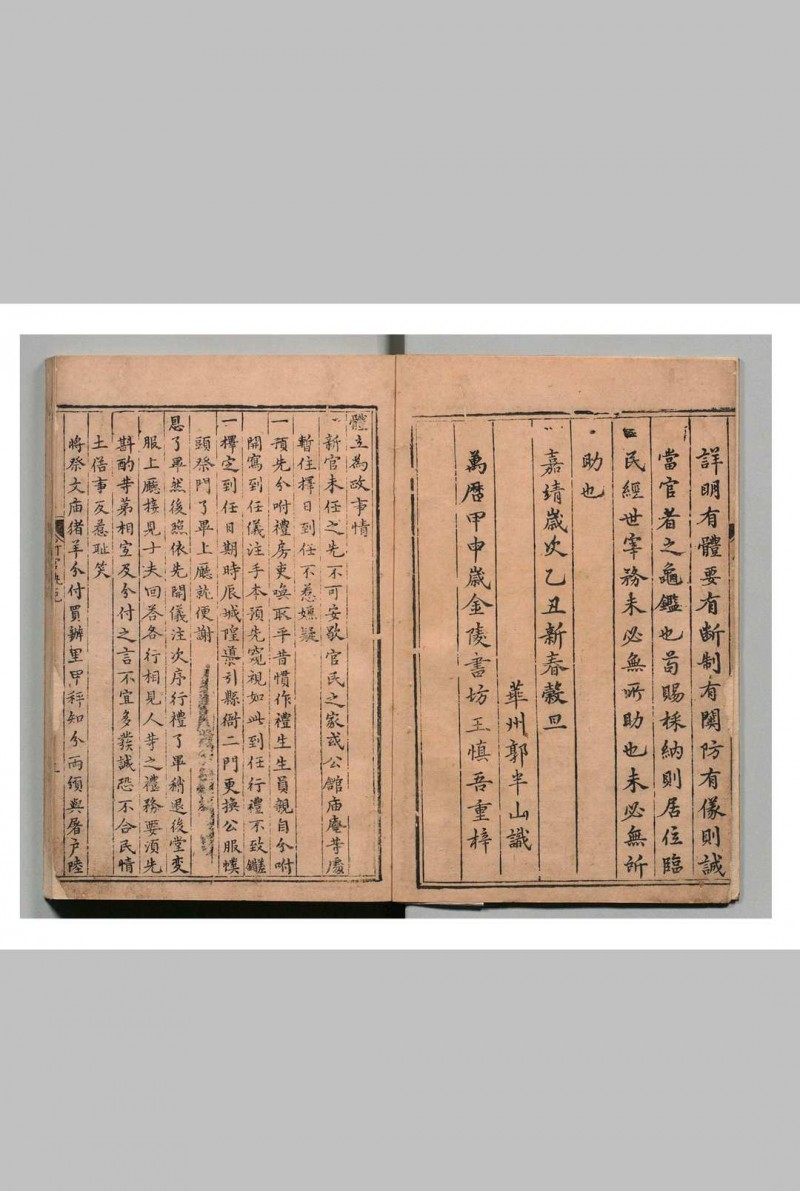 詳明有體要有斷制有関防有儀則誠
當官者之龜鑑也苟賜採納則居位臨
民經世宰務未必無所助也未必無所
助也
嘉靖歲次乙丑新春穀旦
華州郭半山識
萬歷甲申歲金陵書坊王慎吾重梓
體立為政事情
一新官未任之先不可安歇官民之家或公館庙庵䓁處
暫住擇日到任不惹嫌疑
一預先分咐禮房吏喚取平昔慣作禮生生員親自分咐
開寫到任儀注手本預先寬視如此到任行禮不致
一擇定到任日期時辰城隍導引縣衙二門更換公服幞
頭祭門了畢上廳就便謝
恩了畢然後照依先開儀注次序行禮了畢稍退後堂変
服上廳接見士夫回荅各行相見人䓁之禮務要湏先
斟酌䓁第相宜及分付之言不宜多襍誠恐不合民情
土俗事反惹耻笑
將祭文庙猪羊分付買辦里甲秤知分両領與屠戸陸